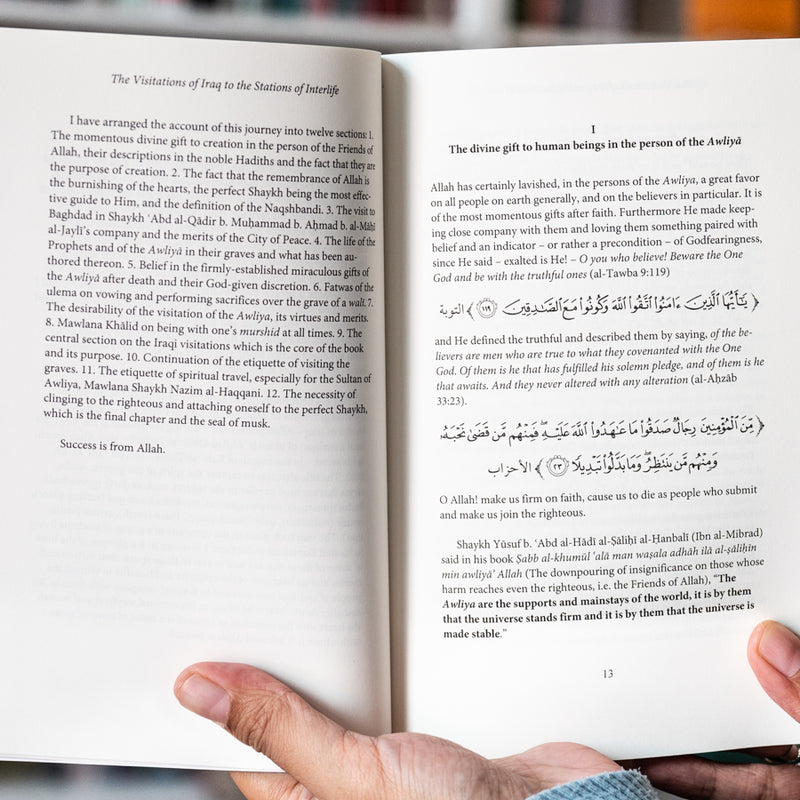 The Visitations of Iraq to the Stations of Interlife
I have arranged the account of this journey into twelve sections: 1.
The momentous divine gift to creation in the person of the Friends of
Allah, their descriptions in the noble Hadiths and the fact that they are
the purpose of creation. 2. The fact that the remembrance of Allah is
the burnishing of the hearts, the perfect Shaykh being the most effec-
tive guide to Him, and the definition of the Naqshbandi. 3. The visit to
Baghdad in Shaykh ʿAbd al-Qādir b. Muḥammad b. Aḥmad b. al-Māḥī
al-Jaylī’s company and the merits of the City of Peace. 4. The life of the
Prophets and of the Awliyā in their graves and what has been au-
thored thereon. 5. Belief in the firmly-established miraculous gifts of
the Awliyā after death and their God-given discretion. 6. Fatwas of the
ulema on vowing and performing sacrifices over the grave of a walī. 7.
The desirability of the visitation of the Awliya, its virtues and merits.
8. Mawlana Khālid on being with one’s murshid at all times. 9. The
central section on the Iraqi visitations which is the core of the book
and its purpose. 10. Continuation of the etiquette of visiting the
graves. 11. The etiquette of spiritual travel, especially for the Sultan of
Awliya, Mawlana Shaykh Nazim al-Haqqani. 12. The necessity of
clinging to the righteous and attaching oneself to the perfect Shaykh,
which is the final chapter and the seal of musk.
Success is from Allah.
I
The divine gift to human beings in the person of the Awliyā
Allah has certainly lavished, in the persons of the Awliya, a great favor
on all people on earth generally, and on the believers in particular. It is
of the most momentous gifts after faith. Furthermore He made keep-
ing close company with them and loving them something paired with
belief and an indicator – or rather a precondition – of Godfearingness,
since He said – exalted is He! – O you who believe! Beware the One
God and be with the truthful ones (al-Tawba 9:119)
﴿ يَـٰٓأَيُّهَا ٱلَّذِينَ ءَامَنُوا۟ ٱتَّقُوا۟ ٱللَّهَ وَكُونُوا۟ مَعَ ٱلصَّـٰدِقِينَ ١١٩ ﴾ التوبة
and He defined the truthful and described them by saying, of the be-
lievers are men who are true to what they covenanted with the One
God. Of them is he that has fulfilled his solemn pledge, and of them is he
that awaits. And they never altered with any alteration (al-Aḥzāb
33:23).
﴿ مِّنَ ٱلْمُؤْمِنِينَ رِجَالٌ صَدَقُوا۟ مَا عَـٰهَدُوا۟ ٱللَّهَ عَلَيْهِ ۖ فَمِنْهُم مَّن قَضَىٰ نَحْبَهُۥ
وَمِنْهُم مَّن يَنتَظِرُ ۖ وَمَا بَدَّلُوا۟ تَبْدِيلًا ٢٣ ﴾ الأحزاب
O Allah! make us firm on faith, cause us to die as people who submit
and make us join the righteous.
Shaykh Yūsuf b. ʿAbd al-Hādī al-Ṣāliḥī al-Ḥanbalī (Ibn al-Mibrad)
said in his book Ṣabb al-khumūl ʿalā man waṣala adhāh ilā al-ṣāliḥīn
min awliyāʾ Allah (The downpouring of insignificance on those whose
harm reaches even the righteous, i.e. the Friends of Allah), “The
Awliya are the supports and mainstays of the world, it is by them
that the universe stands firm and it is by them that the universe is
made stable.”
13